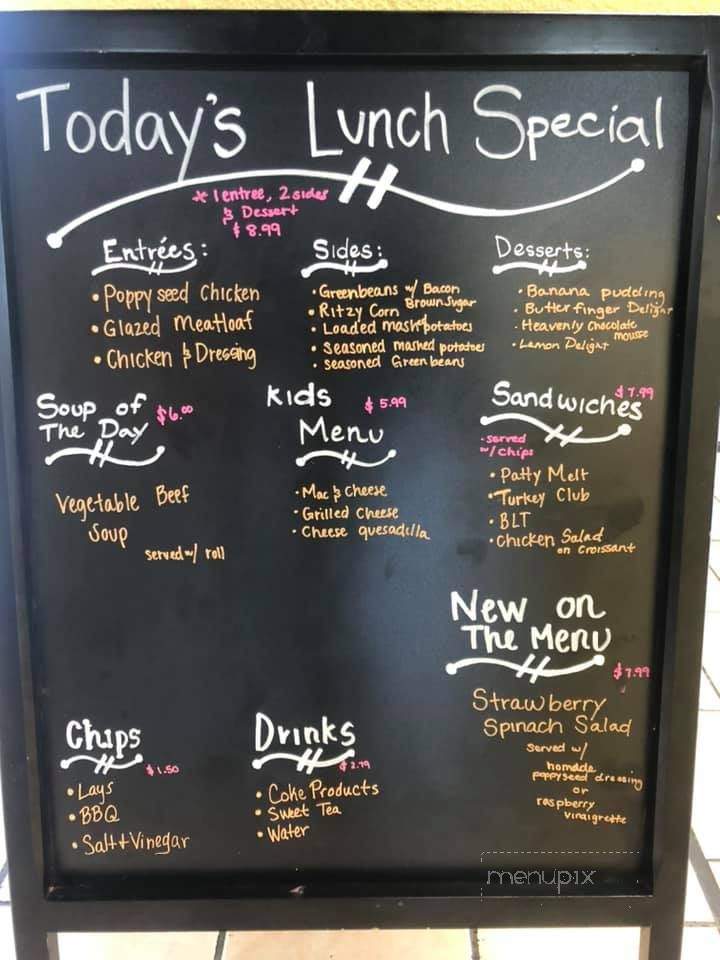 Today's Lunch Special
* 1 entree, 2 sides
& Dessert
$8.99
Entrées:
• Poppyseed Chicken
• Glazed Meatloaf
• Chicken & Dressing
Sides:
• Greenbeans w/ Bacon
Brown Sugar
• Ritzy Corn
• Loaded mashed potatoes
• Seasoned mashed potatoes
• Seasoned Greenbeans
Desserts:
• Banana pudding
• Butterfinger Delight
• Heavenly Chocolate
mousse
• Lemon Delight
Soup of
The Day
$6.00
Vegetable Beef
Soup
served w/ roll
Kids
Menu
$5.99
• Mac & Cheese
• Grilled Cheese
• Cheese quesadilla
Sandwiches
$7.99
• served
w/ chips
• Patty Melt
• Turkey Club
• BLT
• Chicken Salad
on Croissant
New on
The Menu
$7.99
Strawberry
Spinach Salad
served w/
homade
poppyseed dressing
or
raspberry
vinaigrette
Chips
$1.50
• Lays
• BBQ
• Salt + Vinegar
Drinks
$2.79
• Coke Products
• Sweet Tea
• Water
menupix